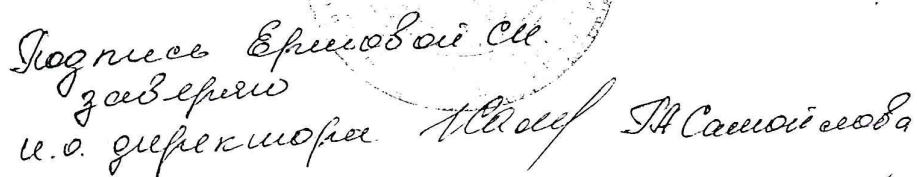 Подпись Ермовой С.И.
заверяю
и.о. директора Г.А Самойлова